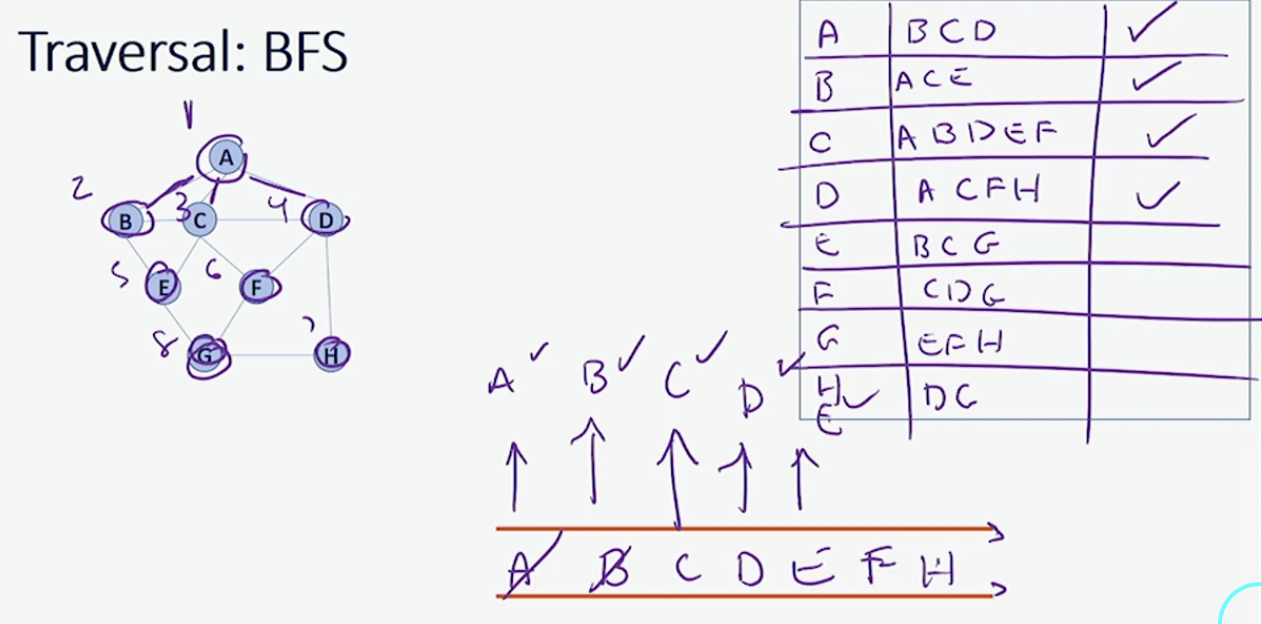 Traversal: BFS
1
A
2 B 3 C 4 D
5 E 6 F
8 G 7 H
A BCD ✓
B ACE ✓
C ABDEF ✓
D ACFH ✓
E BCG
F CDG
G EFH
H DG
A ✓ B ✓ C ✓ D ✓ E ✓
A B C D E F H